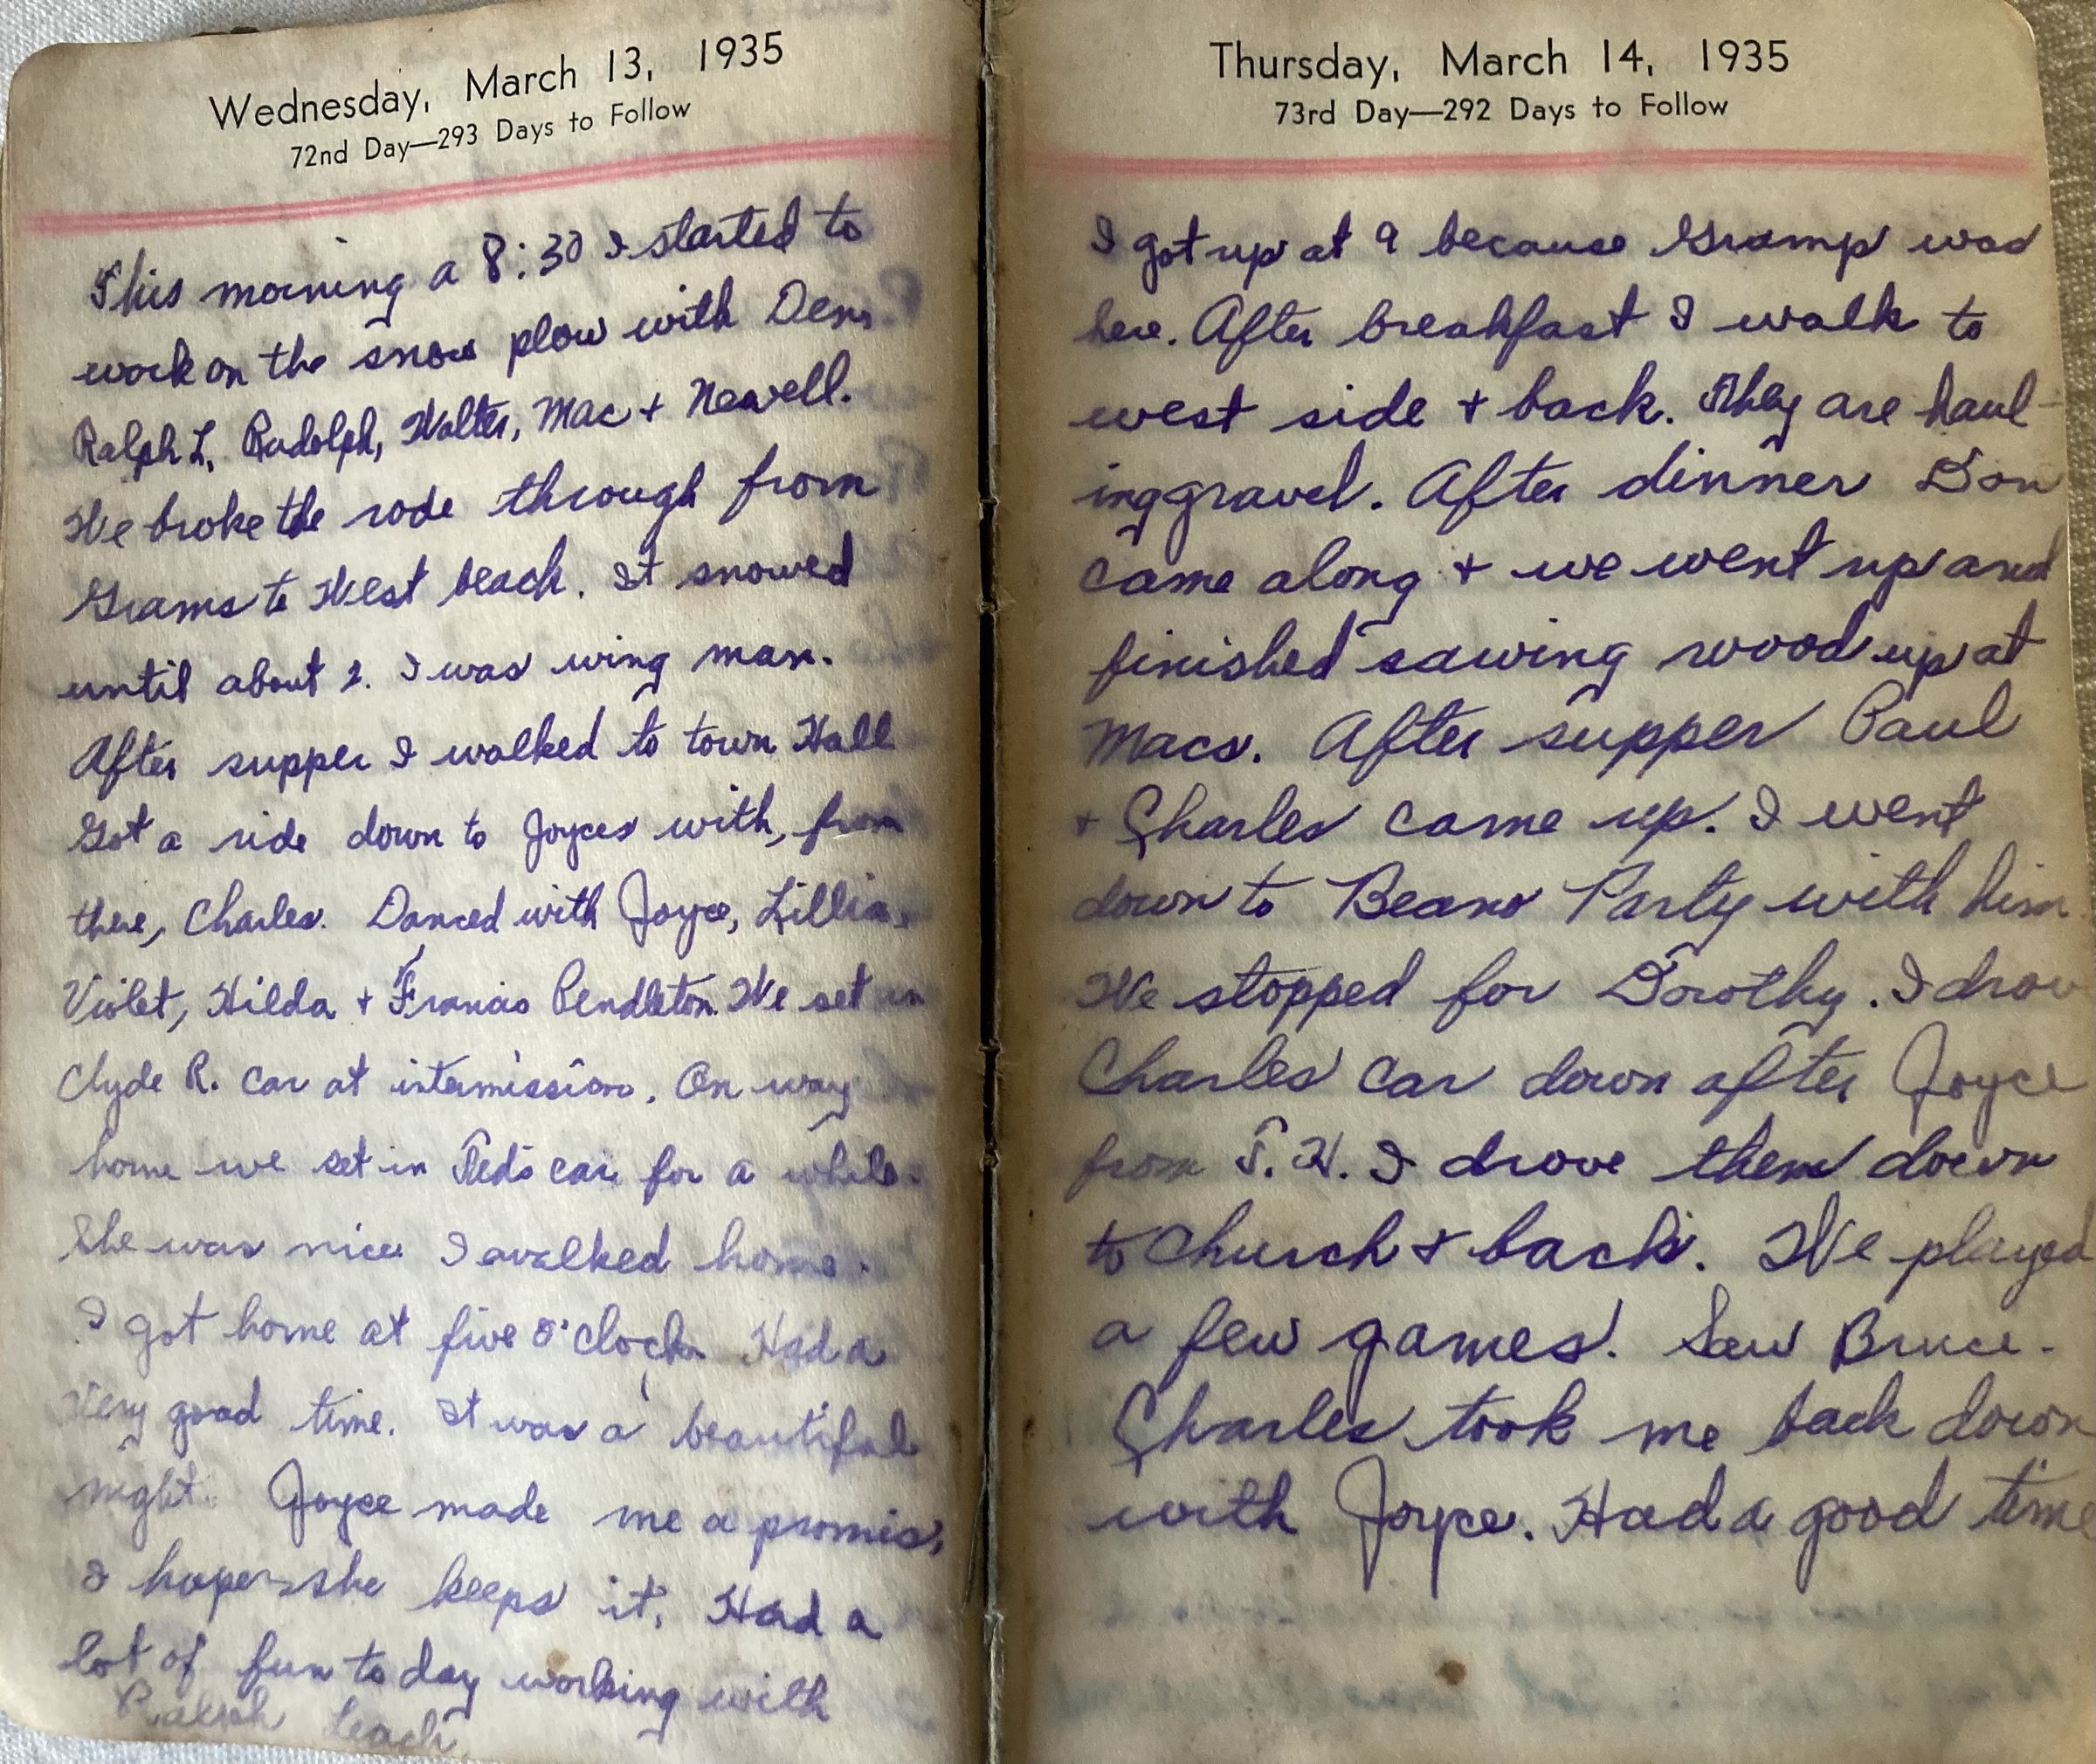 Wednesday, March 13, 1935
72nd Day—293 Days to Follow
This morning a 8:30 I started to
work on the snow plow with
Ralph L, Rudolph, Walter, Mac + Newell.
We broke the rode through from
Grams to West beach. It snowed
until about 2. I was wing man.
After supper I walked to town Hall
Got a ride down to Joyces with, from
there, Charles. Danced with Joyce, Lillian,
Violet, Hilda + Francis Pendleton. We set in
Clyde R. car at intermission. On way
home we set in Teds car for a while.
She was nice I walked home.
I got home at five o'clock Had a
very good time. It was a beautiful
night. Joyce made me a promis,
I hope she keeps it. Had a
lot of fun to day working with
Ralph Leach
Thursday, March 14, 1935
73rd Day—292 Days to Follow
I got up at 9 because Gramp was
here. After breakfast I walk to
west side + back. They are haul-
ing gravel. After dinner Don
came along + we went up and
finished sawing wood up at
Macs. After supper Paul
+ Charles came up. I went
down to Beano Party with him.
We stopped for Dorothy. I drov
Charles car down after Joyce
from T.H. I drove them down
to Church + back. We played
a few games. Saw Bruce.
Charles took me back down
with Joyce. Had a good time